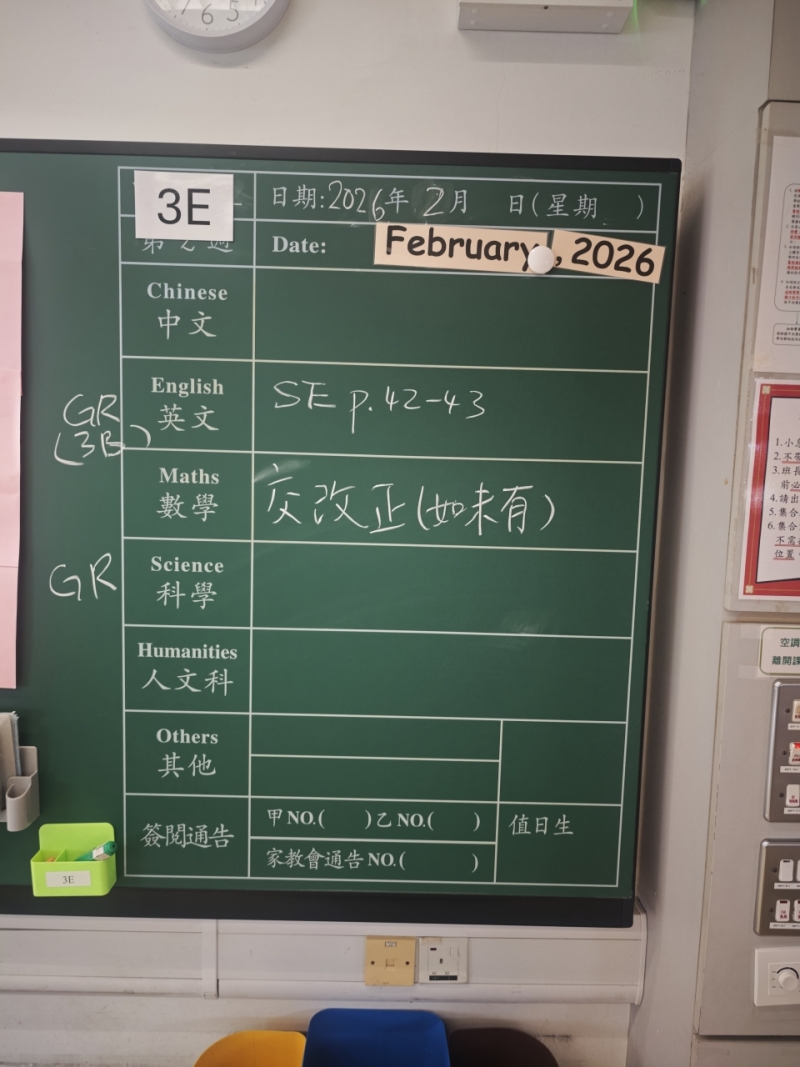 6 5
3E
日期:2026年 2月 日(星期 )
第2週
Date: February , 2026
Chinese
中文
English
英文
SE p.42-43
GR
(3B)
Maths
數學
交改正(如未有)
Science
科學
GR
Humanities
人文科
Others
其他
簽閱通告
甲NO.( )乙NO.( )
家教會通告NO.( )
值日生
3E
1.小息
2.不帶
3.班長
前必
4.請出
5.集合
6.集合
不需
位置
空調
離開課